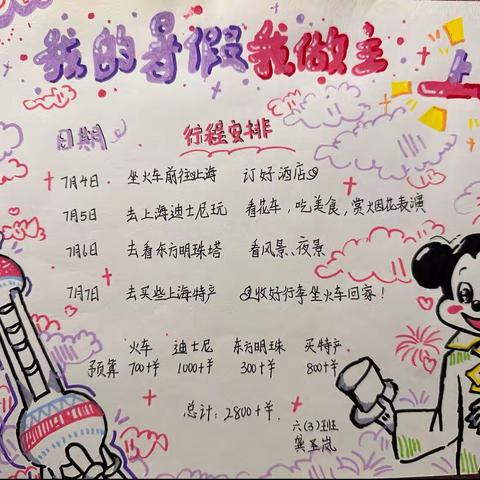 我的暑假我做主
日期 行程安排
7月4日 坐火车前往上海 订好酒店
7月5日 去上海迪士尼玩 看花车,吃美食,赏烟花表演
7月6日 去看东方明珠塔 看风景、夜景
7月7日 去买些上海特产 收好行李坐火车回家!
火车 迪士尼 东方明珠 买特产
预算 700+羊 1000+羊 300+羊 800+羊
总计:2800+羊.
六(3)班
龚圣岚